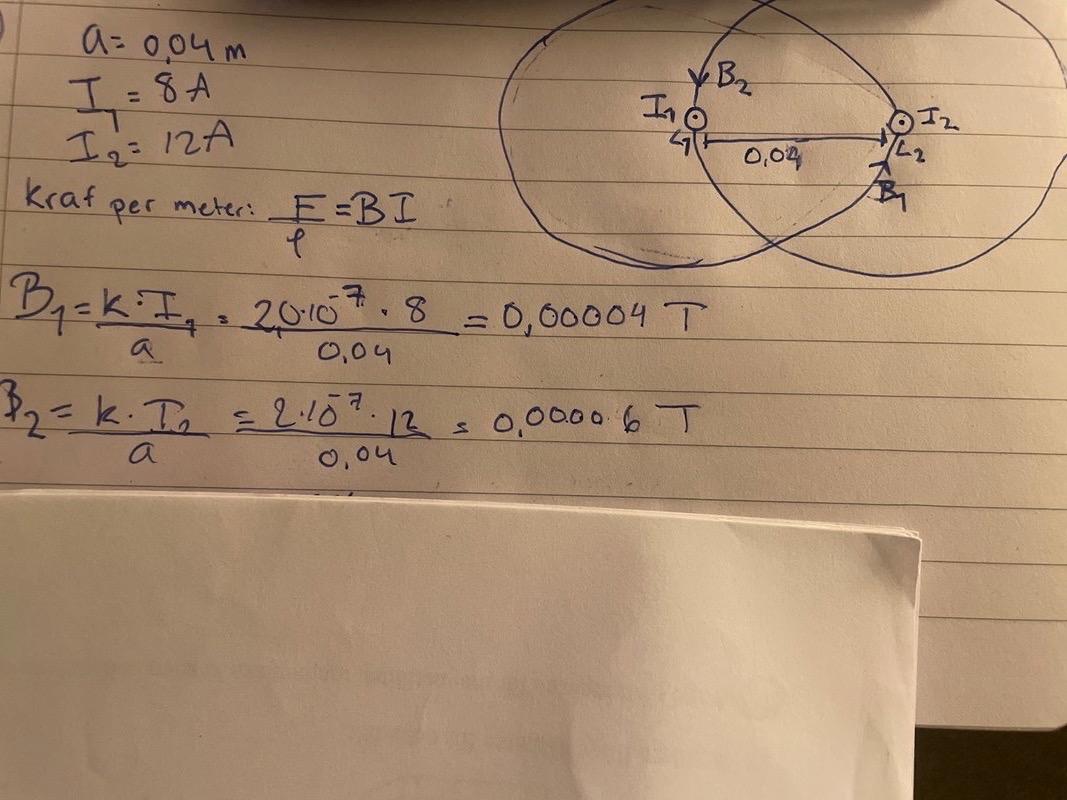 a = 0,04 m
I₁ = 8 A
I₂ = 12 A
Kraf per meter: F/l = BI
B₂
I₁
I₂
L₁
L₂
0,04
B₁
B₁ = k · I₁ / a = 20·10⁻⁷ · 8 / 0,04 = 0,00004 T
B₂ = k · I₂ / a = 2·10⁻⁷ · 12 / 0,04 = 0,00006 T